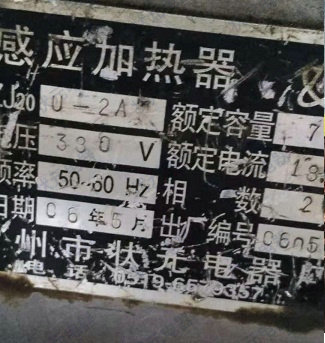 感应加热器
ZJ20 U-2A 额定容量 7
电压 380 V 额定电流 18
频率 50-60 Hz 相 数 2
日期 06年5月 出厂编号 0605
州市状元电器厂
电话 0519-6539357